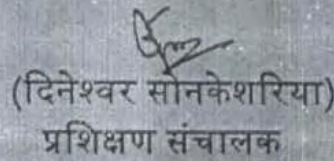 (दिनेश्वर सोनकेशरिया)
प्रशिक्षण संचालक